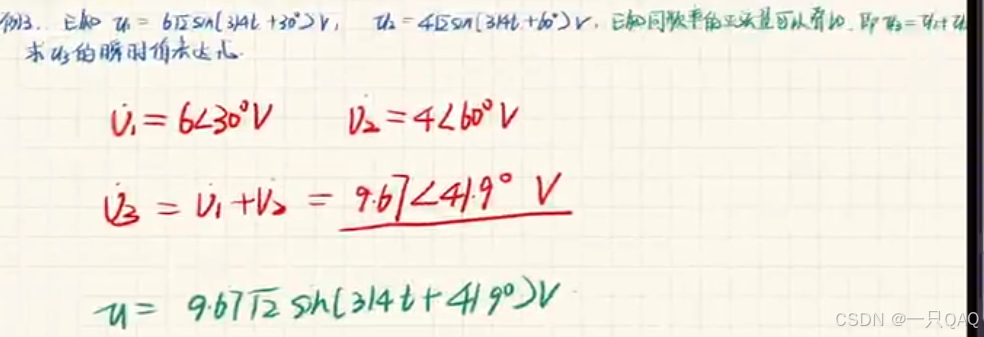 例3. 已知 u₁ = 6√2 sin(314t +30°)V, u₂ = 4√2 sin(314t +60°)V, 已知同频率的正弦量可以叠加, 即 u₃ = u₁+ u₂
求 u₃ 的瞬时值表达式.
U̇₁ = 6∠30° V U̇₂ = 4∠60° V
U̇₃ = U̇₁ + U̇₂ = 9.67∠41.9° V
u = 9.67√2 sin(314t + 41.9°)V
CSDN @一只QAQ